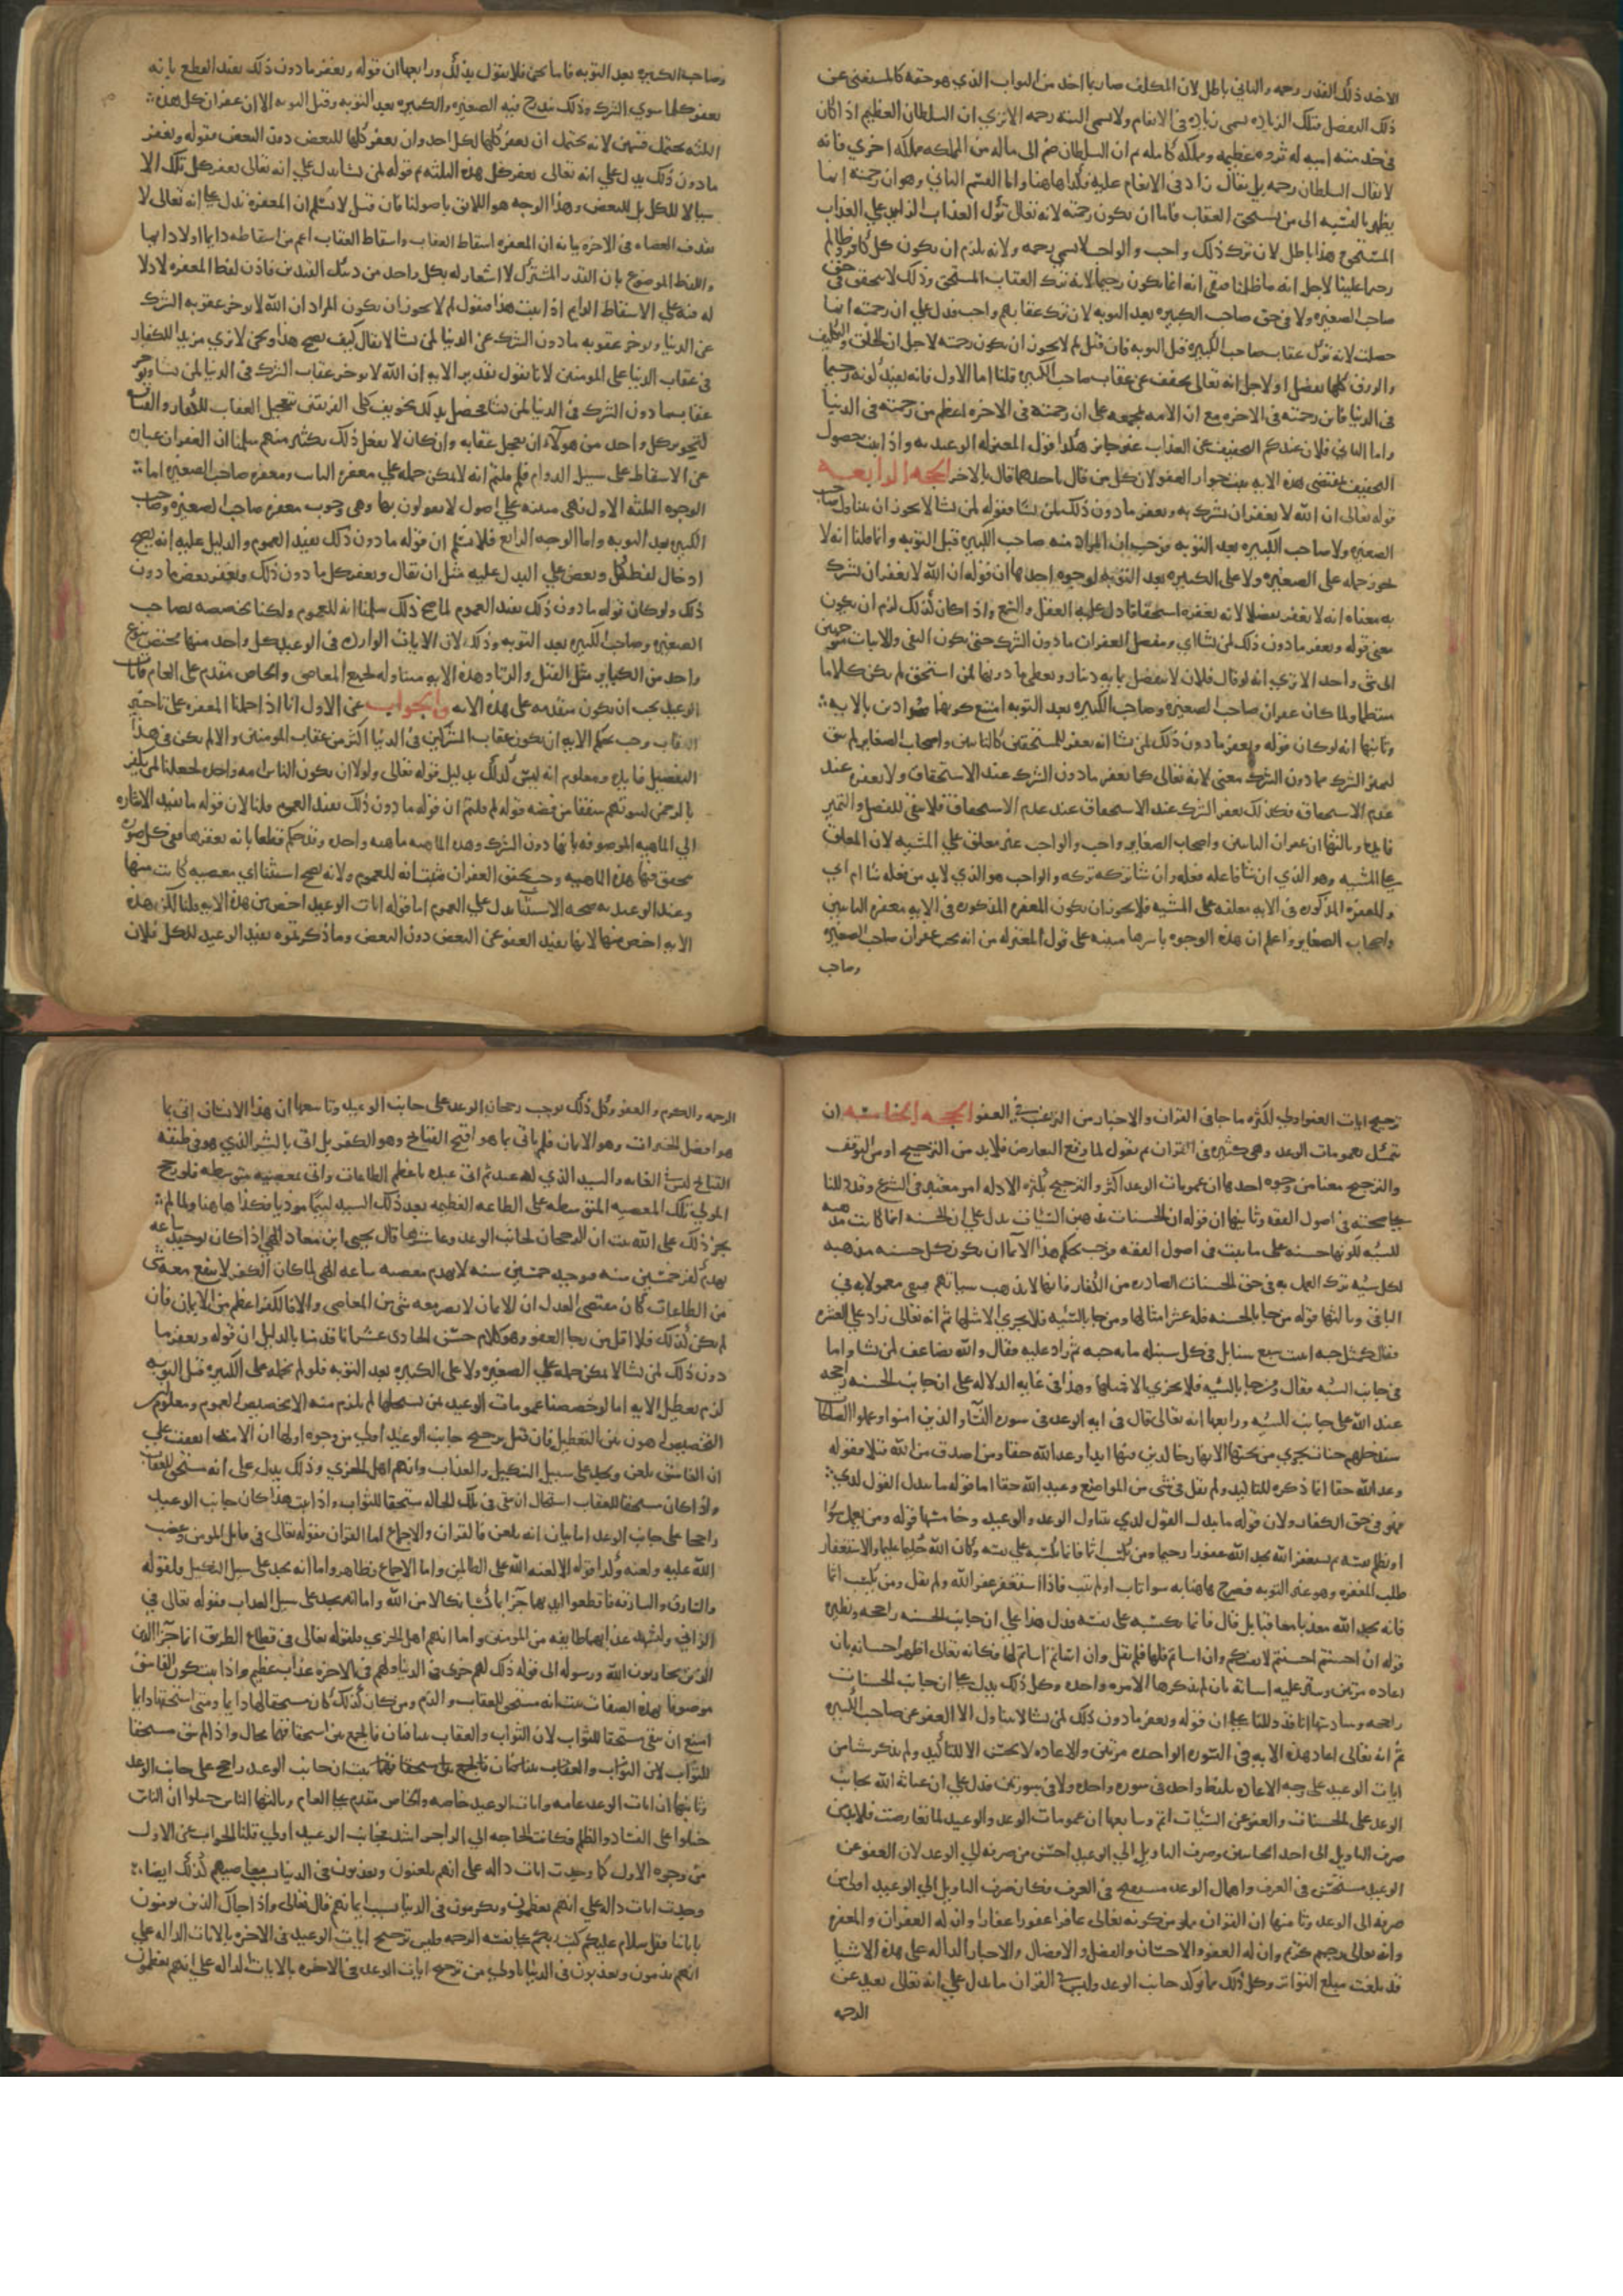 الاخذ ذلك القدر رحمه والثاني باطل لان المكلف صار بما اخذ من الثواب الذي هو حقه كالمستغنى عن
ذلك التفضل فتلك الزياده تسمى زياده في الانعام ولا تسمى البته رحمه الا ترى ان السلطان العظيم اذا كان
في خدمته امير له ثروه عظيمه ومملكه كامله ثم ان السلطان ضم الى ماله من المملكه مملكه اخرى فانه
لا يقال السلطان رحمه بل يقال زاد في الانعام عليه فكذا هاهنا واما القسم الثاني وهو ان رحمته انما
يظهر بالنسبه الى من يستحق العقاب فاما ان تكون رحمته لانه تعالى ترك العذاب الزايد على العذاب
المستحق وهذا باطل لان ترك ذلك واجب والواجب لا يسمى رحمه ولانه يلزم ان يكون كل كافر وظالم
رحيما علينا لاجل انه ما ظلمنا فبقي انه انما يكون رحيما لانه ترك العقاب المستحق وذلك لا يتحقق في حق
صاحب الصغيره ولا في حق صاحب الكبيره بعد التوبه لان ترك عقابهم واجب فدل على ان رحمته انما
حصلت لانه ترك عقاب صاحب الكبيره قبل التوبه فان قيل لم لا يجوز ان يكون رحمته لاجل ان الخلق والتكليف
والرزق كلها تفضل او لاجل انه تعالى يخفف عن عقاب صاحب الكبيره قلنا اما الاول فانه يفيد كونه رحيما
في الدنيا فاين رحمته في الاخره مع ان الامه مجمعه على ان رحمته في الاخره اعظم من رحمته في الدنيا
واما الثاني فلان عندكم التخفيف عن العذاب غير جايز هكذا قول المعتزله الوعيديه واذا ثبت حصول
التخفيف بمقتضى هذه الايه ثبت جواز العفو لان كل من قال باحدهما قال بالاخر الحجه الرابعه
قوله تعالى ان الله لا يغفر ان يشرك به ويغفر ما دون ذلك لمن يشا فقوله لمن يشا لا يجوز ان يتناول صاحب
الصغيره ولا صاحب الكبيره بعد التوبه فوجب ان المراد منه صاحب الكبيره قبل التوبه وانما قلنا انه لا
يجوز حمله على الصغيره ولا على الكبيره بعد التوبه لوجوه احدها ان قوله ان الله لا يغفر ان يشرك
به معناه انه لا يغفر تفضلا لانه يغفره استحقاقا دل عليه العقل والسمع واذا كان كذلك لزم ان يكون
معنى قوله ويغفر ما دون ذلك لمن يشا اي ويتفضل بغفران ما دون الشرك حتى يكون النفي والاثبات متوجهين
الى شي واحد الا ترى انه لو قال فلان لا يتفضل بمايه دينار ويعطي ما دونها لمن استحق لم يكن كلاما
منتظما ولما كان غفران صاحب الصغيره وصاحب الكبيره بعد التوبه امتنع كونهما مرادين بالايه
وثانيها انه لو كان قوله ويغفر ما دون ذلك لمن يشا انه يغفر للمستحقين كالتايبين واصحاب الصغاير لم يبق
لتميز الشرك مما دون الشرك معنى لانه تعالى كما يغفر ما دون الشرك عند الاستحقاق ولا يغفره عند
عدم الاستحقاق فكذلك يغفر الشرك عند الاستحقاق عند عدم الاستحقاق فلا يبقى للفصل والتميز
فايده وثالثها ان غفران التايبين واصحاب الصغاير واجب والواجب غير معلق على المشيه لان المعلق
على المشيه وهو الذي ان شا فاعله فعله وان شا تركه تركه والواجب هو الذي لا بد من فعله شا ام ابى
والمغفره المذكوره في الايه معلقه على المشيه فلا يجوز ان يكون المغفره المذكوره في الايه مغفره التايبين
واصحاب الصغاير واعلم ان هذه الوجوه باسرها مبينه على قول المعتزله من انه يجب غفران صاحب الصغيره
وصاحب
وصاحب الكبيره بعد التوبه فاما نحن فلا نقول بذلك ورابعها ان قوله ويغفر ما دون ذلك يفيد القطع بانه
يغفر كلما سوى الشرك وذلك يندرج فيه الصغيره والكبيره بعد التوبه وقبل التوبه الا ان غفران كل هذه
الثلثه يحتمل قسمين لانه يحتمل ان يغفر كلها لكل احد وان يغفر كلها للبعض دون البعض فقوله ويغفر
ما دون ذلك يدل على انه تعالى يغفر كل هذه الثلثه ثم قوله لمن يشا يدل على انه تعالى يغفر كل تلك الا
سيالا للكل بل للبعض وهذا الوجه هو اللايق باصولنا فان قيل لا نسلم ان المغفره تدل على انه تعالى لا
يعذب العصاه في الاخره بيانه ان المغفره اسقاط العقاب واسقاط العقاب اعم من اسقاطه دايما او لا دايما
واللفظ الموضوع بازا القدر المشترك لا اشعار له بكل واحد من ذينك القيدين فاذن لفظ المغفره لا دلا
له فيه على الاسقاط الدايم اذا ثبت هذا فنقول لم لا يجوز ان يكون المراد ان الله لا يوخر عقوبه الشرك
عن الدنيا ويوخر عقوبه ما دون الشرك عن الدنيا لمن يشا لا يقال كيف يصح هذا ونحن لا نرى مزيدا للكفار
في عقاب الدنيا على المومنين لانا نقول تقدير الايه ان الله لا يوخر عقاب الشرك في الدنيا لمن يشا ويوخر
عقاب ما دون الشرك في الدنيا لمن يشا فحصل بذلك تخويف كلى الفريقين بتعجيل العقاب للكفار والفساق
لتجويز كل واحد من هولاء ان يعجل عقابه وان كان لا يفعل ذلك بكثير منهم سلمنا ان الغفران عباره
عن الاسقاط على سبيل الدوام فلم قلتم انه لا يمكن حمله على مغفره التايب ومغفره صاحب الصغيره اما
الوجوه الثلثه الاول فهي مبنيه على اصول لا يقولون بها وهي وجوب مغفره صاحب الصغيره وصاحب
الكبيره بعد التوبه واما الوجه الرابع فلا نسلم ان قوله ما دون ذلك يفيد العموم والدليل عليه انه يصح
ادخال لفظ كل وبعض على البدل عليه مثل ان يقال ويغفر كل ما دون ذلك ويغفر بعض ما دون
ذلك ولو كان قوله ما دون ذلك يفيد العموم لما صح ذلك سلمنا انه للعموم ولكنا نخصصه بصاحب
الصغيره وصاحب الكبيره بعد التوبه وذلك لان الايات الوارده في الوعيد كل واحد منها مختص بنوع
واحد من الكباير مثل القتل والزنا وهذه الايه متناوله لجميع المعاصي والخاص مقدم على العام فايات
الوعيد يجب ان يكون متقدمه على هذه الايه والجواب عن الاول انا اذا حملنا المغفره على تاخير
العقاب وجب بحكم الايه ان يكون عقاب المشركين في الدنيا اكثر من عقاب المومنين والا لم يكن في هذا
التفصيل فايده ومعلوم انه ليس كذلك بدليل قوله تعالى ولولا ان يكون الناس امه واحده لجعلنا لمن يكفر
بالرحمن لبيوتهم سقفا من فضه قوله لم قلتم ان قوله ما دون ذلك يفيد العموم قلنا لان قوله ما يفيد الاشاره
الى الماهيه الموصوفه بانها دون الشرك وهذه الماهيه ماهيه واحده وقد حكم قطعا بانه يغفرها ففي كل صوره
تحقق فيها هذه الماهيه وجب تحقق الغفران فثبت انه للعموم ولانه يصح استثنا اي معصيه كانت منها
وعند الوعيديه صحه الاستثنا يدل على العموم اما قوله ايات الوعيد اخص من هذه الايه قلنا لكن هذه
الايه اخص منها لانها تفيد العفو عن البعض دون البعض وما ذكرتموه يفيد الوعيد للكل فلان
ترجيح ايات العفو اولى لكثره ما جا في القران والاخبار من الترغيب في العفو الحجه الخامسه ان
نتمسك بعمومات الوعد وهي كثيره في القران ثم نقول لما وقع التعارض فلا بد من الترجيح او من التوقف
والترجيح معنا من وجوه احدها ان عمومات الوعد اكثر والترجيح بكثره الادله امر معتبر في الشرع وقد دللنا
على صحته في اصول الفقه وثانيها ان قوله ان الحسنات يذهبن السيئات يدل على ان الحسنه انما كانت مذهبه
للسيه لكونها حسنه على ما ثبت في اصول الفقه فوجب بحكم هذا الايما ان يكون كل حسنه مذهبه
لكل سيه ترك العمل به في حق الحسنات الصادره من الكفار فانها لا تذهب سياتهم فبقي معمولا به في
الباقي وثالثها قوله من جا بالحسنه فله عشر امثالها ومن جا بالسيه فلا يجزى الا مثلها ثم انه تعالى زاد على العشره
فقال كمثل حبه انبتت سبع سنابل في كل سنبله مايه حبه ثم زاد عليه فقال والله يضاعف لمن يشا واما
في جانب السيه فقال ومن جا بالسيه فلا يجزى الا مثلها وهذا في غايه الدلاله على ان جانب الحسنه راجحه
عند الله على جانب السيه ورابعها انه تعالى قال في ايه الوعد في سوره النسا والذين امنوا وعملوا الصالحات
سندخلهم جنات تجري من تحتها الانهار خالدين فيها ابدا وعد الله حقا ومن اصدق من الله قيلا فقوله
وعد الله حقا انما ذكره للتاكيد ولم يقل في شي من المواضع وعيد الله حقا اما قوله ما يبدل القول لدي
فهو في حق الكفار ولان قوله ما يبدل القول لدي يتناول الوعد والوعيد وخامسها قوله ومن يعمل سوا
او يظلم نفسه ثم يستغفر الله يجد الله غفورا رحيما ومن يكسب اثما فانما يكسبه على نفسه وكان الله عليما حكيما والاستغفار
طلب المغفره وهو غير التوبه فصرح هاهنا بانه سوا تاب او لم يتب فاذا استغفر غفر الله ولم يقل ومن يكسب اثما
فانه يجد الله معذبا معاقبا بل قال فانما يكسبه على نفسه فدل هذا على ان جانب الحسنه راجحه ونظيره
قوله ان احسنتم احسنتم لانفسكم وان اساتم فلها فلم يقل وان اساتم اساتم لها فكانه تعالى اظهر احسانه بان
اعاده مرتين وستر عليه اساته بان لم يذكرها الا مره واحده وكل ذلك يدل على ان جانب الحسنات
راجحه وسادسها انا قد دللنا على ان قوله ويغفر ما دون ذلك لمن يشا لا يتناول الا العفو عن صاحب الكبيره
ثم انه تعالى اعاد هذه الايه في السوره الواحده مرتين والاعاده لا تحسن الا للتاكيد ولم يذكر شيا من
ايات الوعيد على وجه الاعاده بلفظ واحد في سوره واحده ولا في سورتين فدل على ان عنايه الله بجانب
الوعد على الحسنات والعفو عن السيئات اتم وسابعها ان عمومات الوعد والوعيد لما تعارضت فلا بد من
صرف التاويل الى احد الجانبين وصرف التاويل الى الوعيد احسن من صرفه الى الوعد لان العفو عن
الوعيد مستحسن في العرف واهمال الوعد مستقبح في العرف فكان صرف التاويل الى الوعيد اولى من
صرفه الى الوعد وثامنها ان القران مملو من كونه تعالى غافرا غفورا غفارا وان له الغفران والمغفره
وانه تعالى رحيم كريم وان له العفو والاحسان والفضل والافضال والاخبار الداله على هذه الاشيا
قد بلغت مبلغ التواتر وكل ذلك مما يوكد جانب الوعد وليس في القران ما يدل على انه تعالى بعيد عن
الرحمه
الرحمه والكرم والعفو وكل ذلك يوجب رجحان الوعد على جانب الوعيد وتاسعها ان هذا الانسان اتى بما
هو افضل الخيرات وهو الايمان فلم يات بما هو اقبح القبايح وهو الكفر بل اتى بالشر الذي هو في طبقه
القبايح ليس في الغايه والسيد الذي له عبد ثم اتى عبده باعظم الطاعات واتى بمعصيه متوسطه فلو رجح
المولى تلك المعصيه المتوسطه على الطاعه العظيمه يعد ذلك السيد لئيما موذيا فكذا هاهنا ولما لم
يجز ذلك على الله ثبت ان الرجحان لجانب الوعد وعاشرها قال يحيى ابن معاذ الهي اذا كان توحيد ساعه
يهدم كفر خمسين سنه فتوحيد خمسين سنه لا يهدم معصيه ساعه الهي لما كان الكفر لا ينفع معه شي
من الطاعات كان مقتضى العدل ان الايمان لا يضر معه شي من المعاصي والا فالكفر اعظم من الايمان فان
لم يكن كذلك فلا اقل من رجا العفو وهو كلام حسن الحادي عشر انا قد بينا بالدليل ان قوله ويغفر ما
دون ذلك لمن يشا لا يمكن حمله على الصغيره ولا على الكبيره بعد التوبه فلو لم نحمله على الكبيره قبل التوبه
لزم تعطيل الايه اما لو خصصنا عمومات الوعيد بمن يستحلها لم يلزم منه الا تخصيص العموم ومعلوم ان
التخصيص اهون من التعطيل فان قيل ترجيح جانب الوعيد اولى من وجوه اولها ان الامه اتفقت على
ان الفاسق يلعن ويحد على سبيل التنكيل والعذاب وانهم اهل الخزي وذلك يدل على انه مستحق للعقاب
واذا كان مستحقا للعقاب استحال ان يبقى في تلك الحاله مستحقا للثواب واذا ثبت هذا كان جانب الوعيد
راجحا على جانب الوعد اما بيان انه يلعن فالقران والاجماع اما القران فقوله تعالى في قاتل المومن وغضب
الله عليه ولعنه وكذا قوله الا لعنه الله على الظالمين واما الاجماع فظاهر واما انه يحد على سبيل التنكيل فلقوله
والسارق والسارقه فاقطعوا ايديهما جزا بما كسبا نكالا من الله واما انه يحد على سبيل العذاب فقوله تعالى في
الزاني وليشهد عذابهما طايفه من المومنين واما انهم اهل الخزي فلقوله تعالى في قطاع الطريق انما جزا الذين
الذين يحاربون الله ورسوله الى قوله ذلك لهم خزى في الدنيا ولهم في الاخره عذاب عظيم واذا ثبت كون الفاسق
موصوفا بهذه الصفات ثبت انه مستحق للعقاب والذم ومن كان كذلك كان مستحقا لهما دايما ومتى استحقهما دايما
امتنع ان يبقى مستحقا للثواب لان الثواب والعقاب متنافيان فالجمع بين استحقاقهما محال واذا لم يبق مستحقا
للثواب لان الثواب والعقاب متنافيان فالجمع بين استحقاقهما ثبت ان جانب الوعيد راجح على جانب الوعد
وثانيها ان ايات الوعد عامه وايات الوعيد خاصه والخاص مقدم على العام وثالثها الناس جبلوا ان الناس
جبلوا على الفساد والظلم فكانت الحاجه الى الزاجر اشد فجانب الوعيد اولى قلنا الجواب عن الاول
من وجوه الاول كما وجدت ايات داله على انهم يلعنون ويعذبون في الدنيا بسبب معاصيهم كذلك ايضا
وجدت ايات داله على انهم يعظمون ويكرمون في الدنيا بسبب ايمانهم قال تعالى واذا جاك الذين يومنون
باياتنا فقل سلام عليكم كتب ربكم على نفسه الرحمه فليس ترجيح ايات الوعيد في الاخره بالايات الداله على
انهم يذمون ويعذبون في الدنيا باولى من ترجيح ايات الوعد في الاخره بالايات الداله على انهم يعظمون